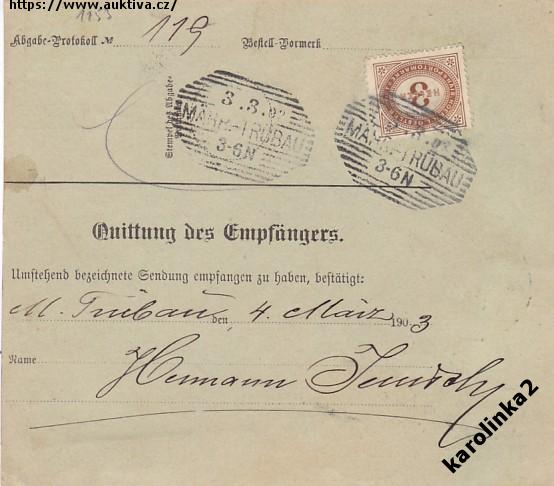 https://www.auktiva.cz/
1153
Abgabe-Protokoll № 119 Bestell-Vormerk
Stempel des Abgabe-
3.3.03
MÄHR.-TRÜBAU
3-6N
3
MÄHR.-TRÜBAU
3-6N
Quittung des Empfängers.
Umstehend bezeichnete Sendung empfangen zu haben, bestätigt:
M. Trübau den 4. März 1903
Name Hermann
karolinka2